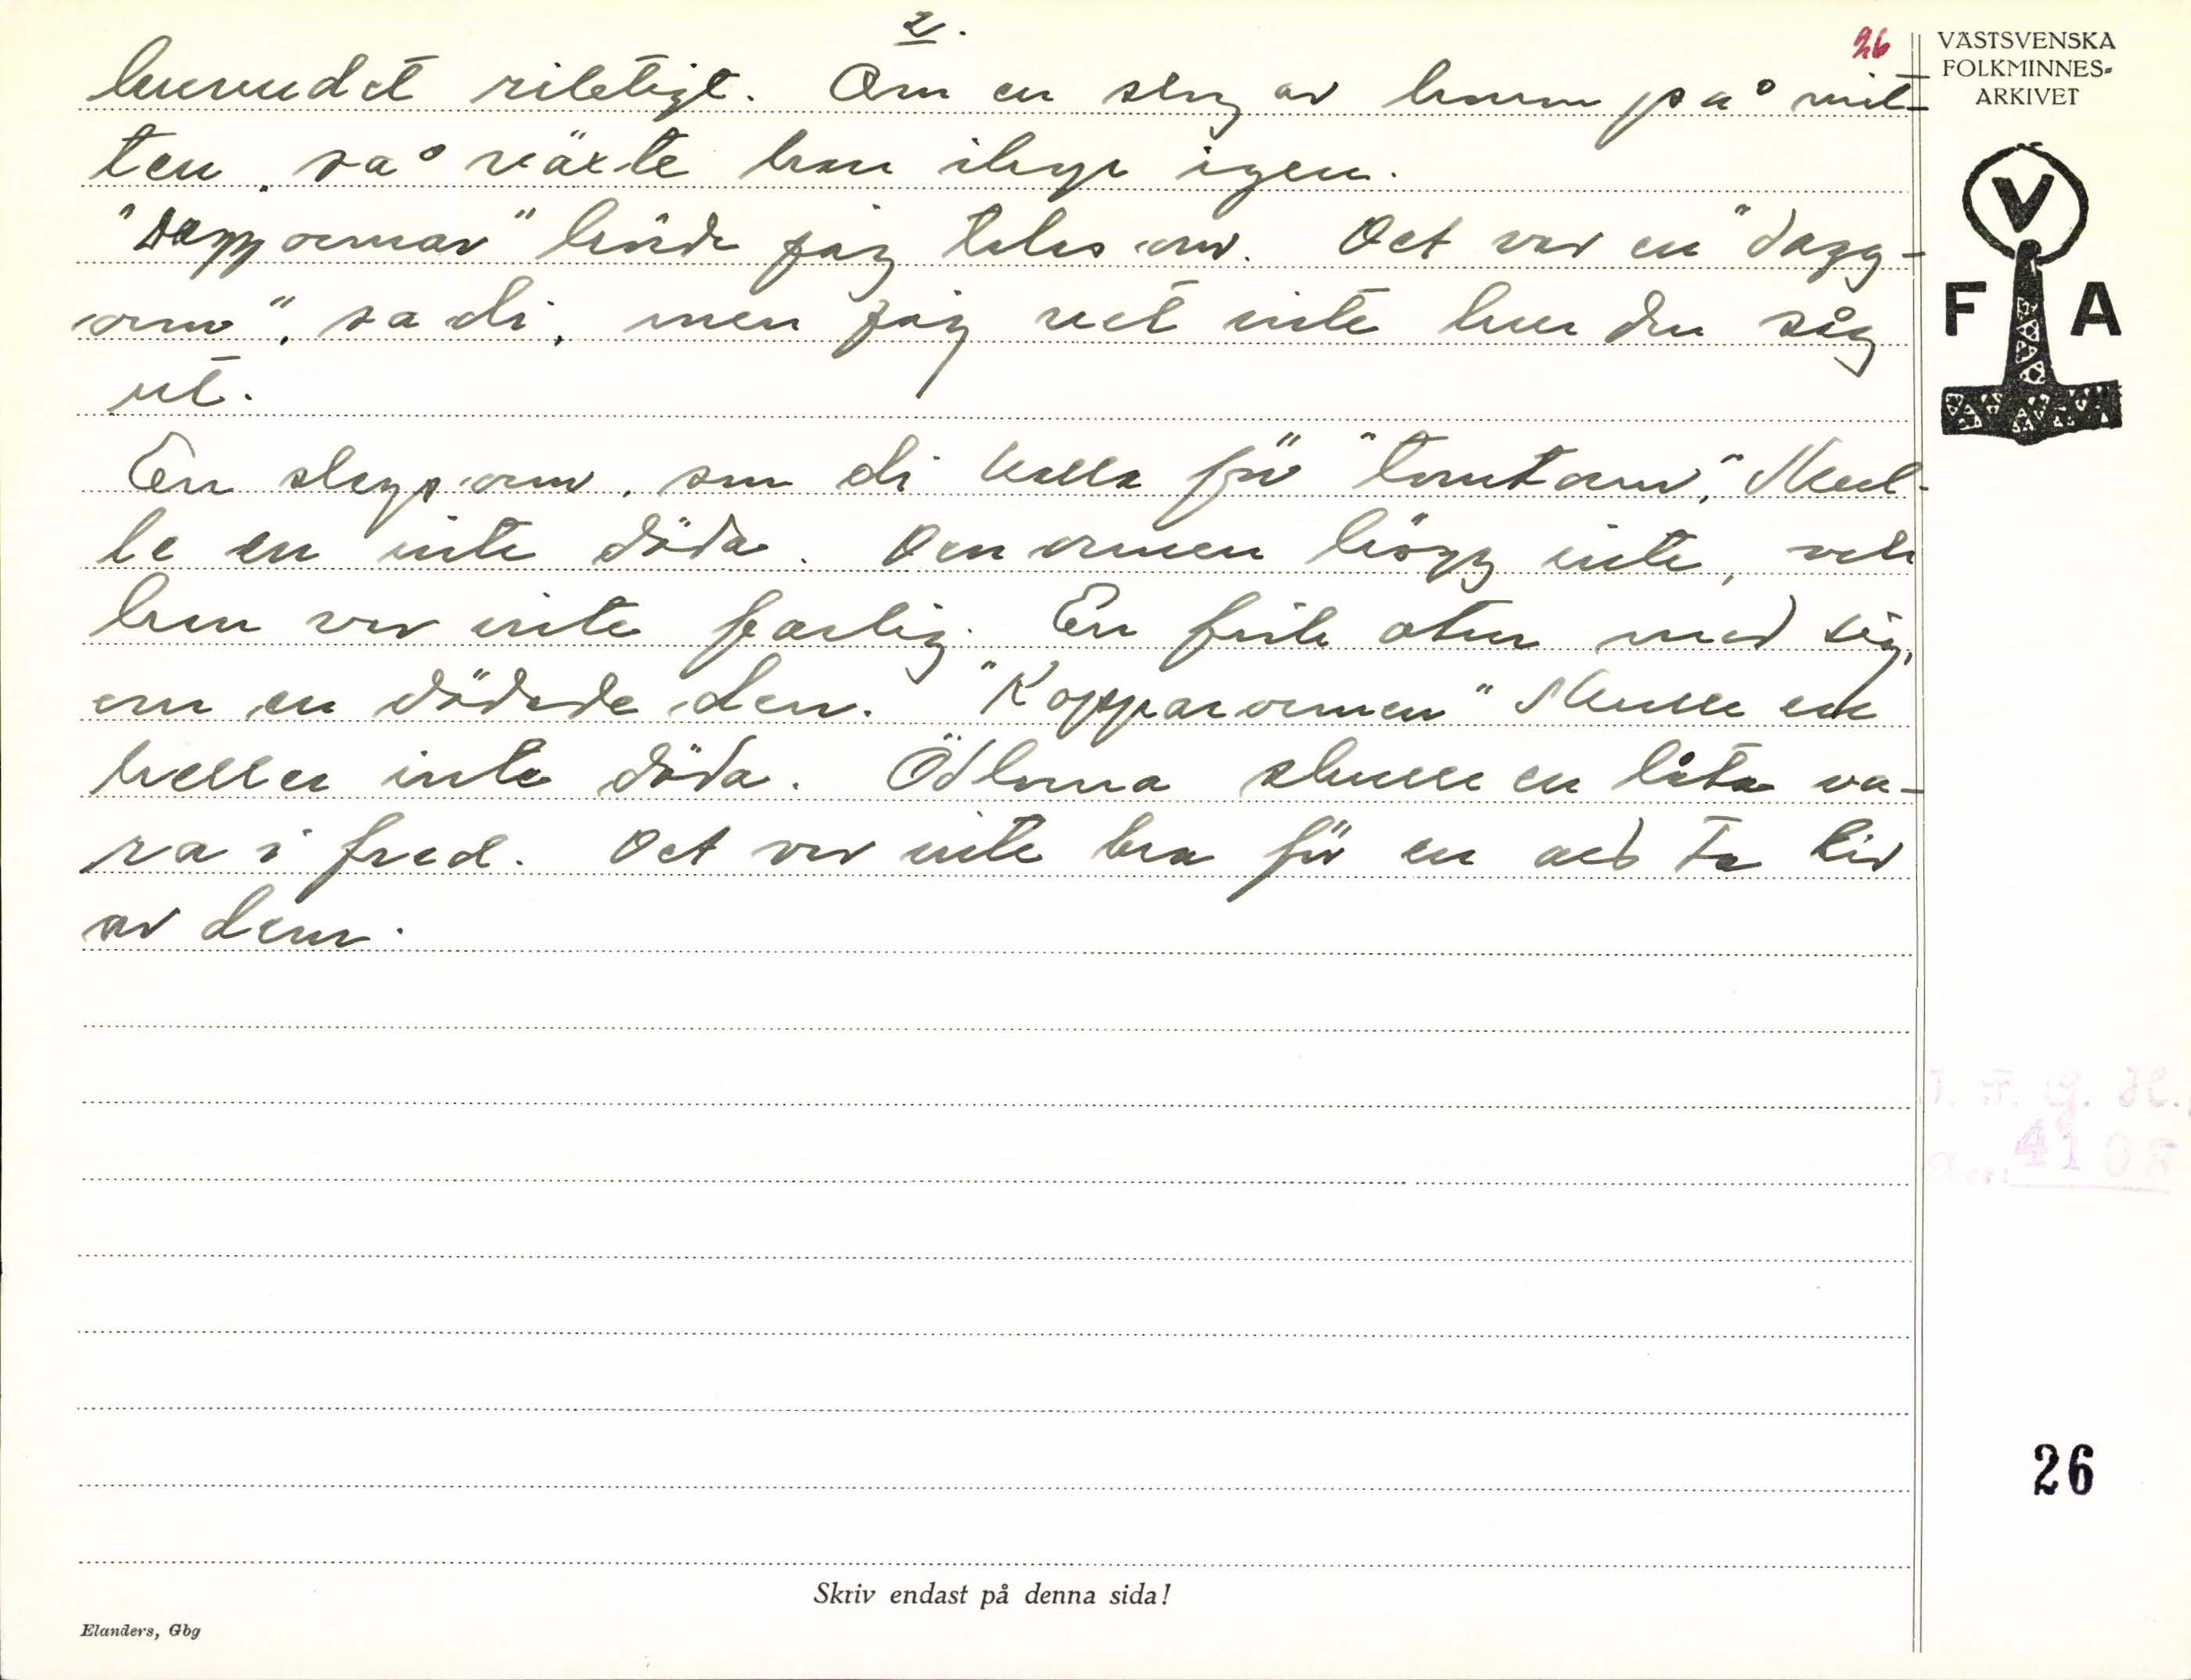 2.
26
huvudet riktigt. Om en slog av honom på mit-
ten, så växte han ihop igen.
"Daggormar" hörde jag talas om. Det var en "dagg-
orm", sa di, men jag vet inte hur den såg
ut.
En slags orm, som di kalla för "tomtorm," skul-
le en inte döda. Den ormen högg inte, och
han var inte farlig. En fick otur med sig,
om en dödade den. "Kopparormen" skulle en
heller inte döda. Ödlorna skulle en låta va-
ra i fred. Det var inte bra för en att ta liv
av dem.
VÄSTSVENSKA
FOLKMINNES-
ARKIVET
V
F A
I. F. G. H.
4105
26
Skriv endast på denna sida!
Elanders, Gbg